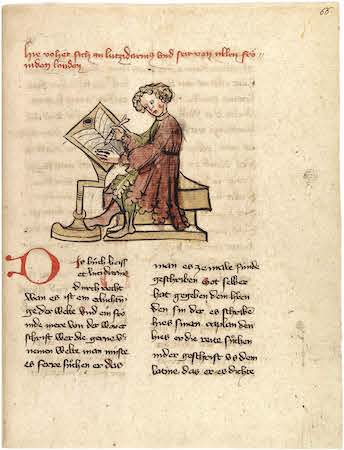 66
hie vohet sich an lutzidarius und seit von allen
landen
Dis bůch heisset
lucidarius
durch recht
wan es ist ein
ge der welte Und ein
mere von der ware
schrift Wer die gerne
nemen Welte man muste
es sere sůchen er das
man es ze male funde
geschriben Got selber
hat gegeben dem hirren
den sin der es schreibe
hies sinen caplan den
hies er die rede sůchen
in der geschrift us dem
latine das er es dichte